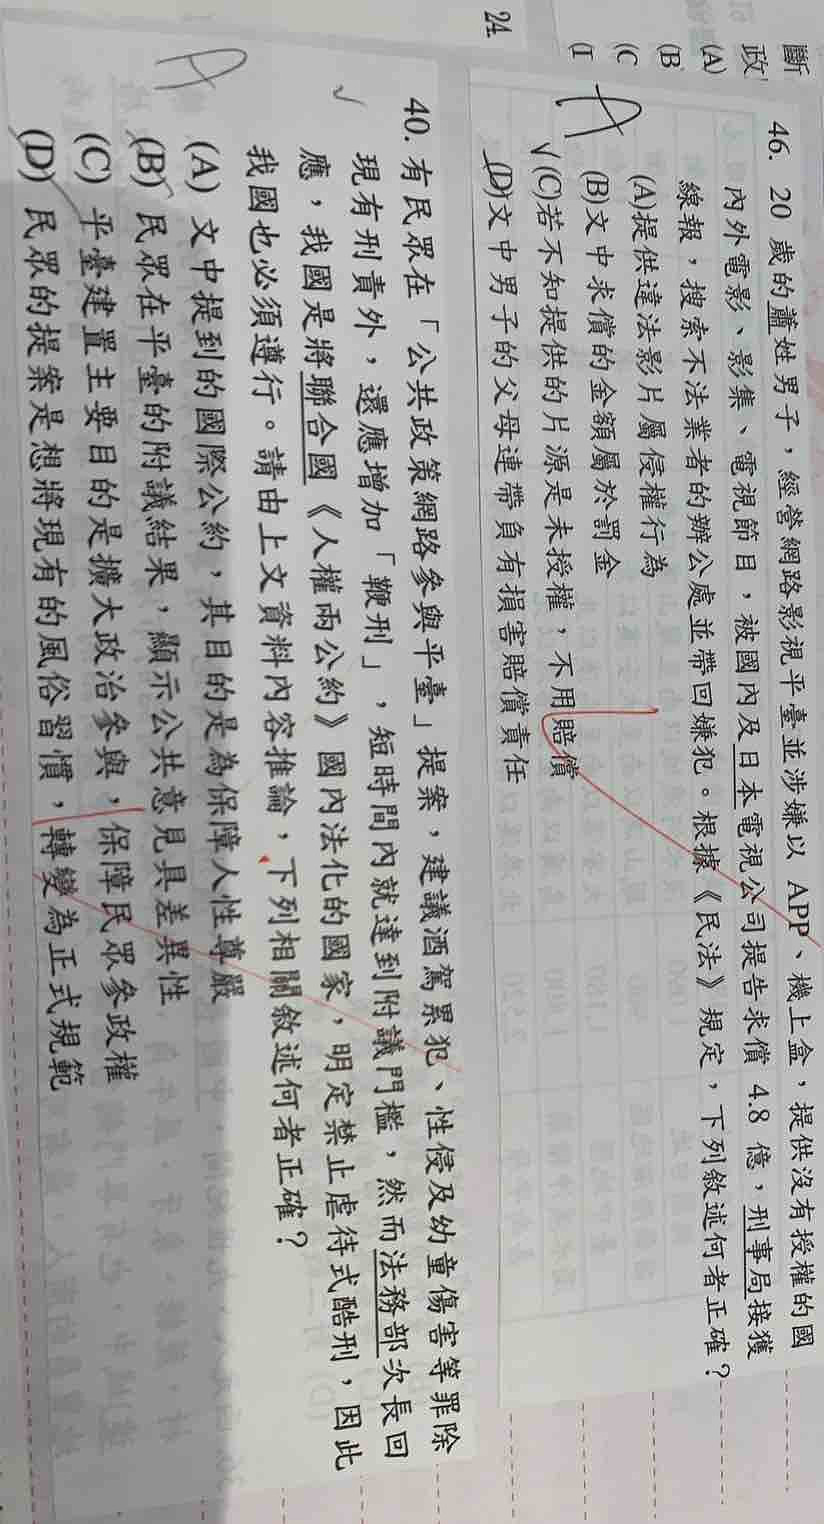 斷
政
(A)
(B
(C
24.
A
46. 20 歲的蕭姓男子，經營網路影視平臺並涉嫌以 APP、機上盒，提供沒有授權的國
內外電影、影集、電視節目，被國內及日本電視公司提告求償 4.8 億，刑事局接獲
線報，搜索不法業者的辦公處並帶回嫌犯。根據《民法》規定，下列敘述何者正確？
(A)提供違法影片屬侵權行為
(B)文中求償的金額屬於罰金
(C)若不知提供的片源是未授權，不用賠償
(D)文中男子的父母連帶負有損害賠償責任
A
40. 有民眾在「公共政策網路參與平臺」提案，建議酒駕累犯、性侵及幼童傷害等罪除
現有刑責外，還應增加「鞭刑」，短時間內就達到附議門檻，然而法務部次長回
應，我國是將聯合國《人權兩公約》國內法化的國家，明定禁止虐待式酷刑，因此
我國也必須遵行。請由上文資料內容推論，下列相關敘述何者正確？
(A) 文中提到的國際公約，其目的是為保障人性尊嚴
(B) 民眾在平臺的附議結果，顯示公共意見具差異性
(C) 平臺建置主要目的是擴大政治參與，保障民眾參政權
(D) 民眾的提案是想將現有的風俗習慣，轉變為正式規範